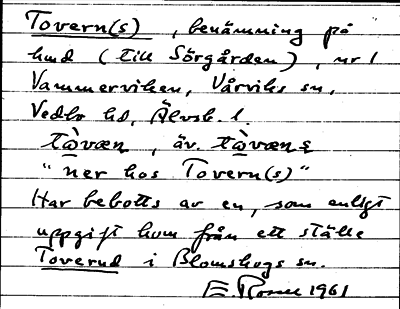 Tovern(s), benämning på
hmd (till Sörgården), nr 1
Vammerviken, Vårviks sn,
Vedbo hd, Älvsb. l.
tωvæn, äv. tωvæns
"ner hos Tovern(s)"
Har bebotts av en, som enligt
uppgift kom från ett ställe
Toverud i Blomskogs sn.
E. 1961